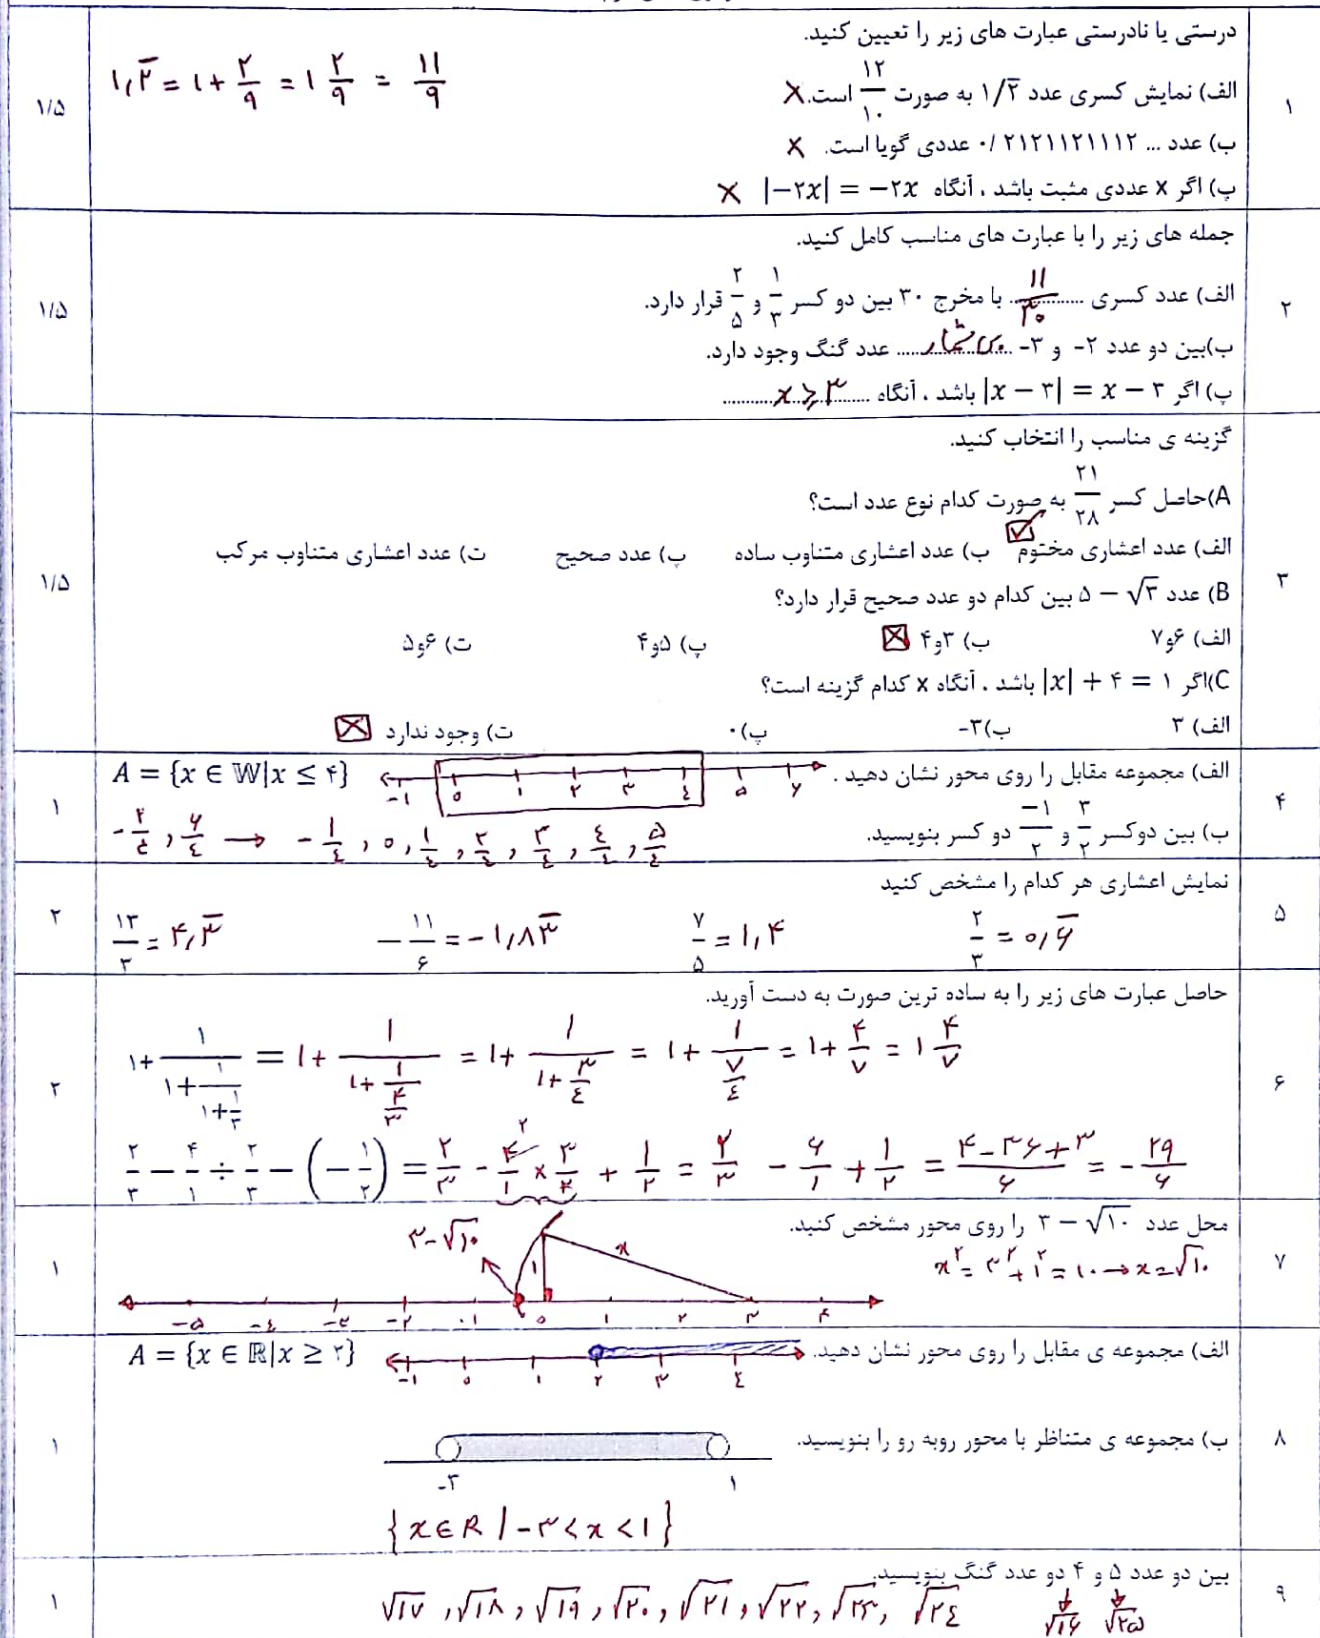 ۱
درستی یا نادرستی عبارت های زیر را تعیین کنید.
الف) نمایش کسری عدد ۱/۲̅ به صورت ۱۲/۱۰ است. ×
۱,۲̅ = ۱ + ۲/۹ = ۱ ۲/۹ = ۱۱/۹
ب) عدد ... ۰/۲۱۲۱۱۲۱۱۱۲ عددی گویا است. ×
پ) اگر x عددی مثبت باشد ، آنگاه |−۲x| = −۲x ×
۱/۵
۲
جمله های زیر را با عبارت های مناسب کامل کنید.
الف) عدد کسری ...۱۱/۳۰... با مخرج ۳۰ بین دو کسر ۱/۳ و ۲/۵ قرار دارد.
ب)بین دو عدد ۲- و ۳- ...بی شمار... عدد گنگ وجود دارد.
پ) اگر |x − ۳| = x − ۳ باشد ، آنگاه ...x ≥ ۳...
۱/۵
۳
گزینه ی مناسب را انتخاب کنید.
A)حاصل کسر ۲۱/۲۸ به صورت کدام نوع عدد است؟
الف) عدد اعشاری مختوم ☑ ب) عدد اعشاری متناوب ساده پ) عدد صحیح ت) عدد اعشاری متناوب مرکب
B) عدد ۵ − √۳ بین کدام دو عدد صحیح قرار دارد؟
الف) ۶و۷ ب) ۳و۴ ☒ پ) ۵و۴ ت) ۶و۵
C)اگر |x| + ۴ = ۱ باشد ، آنگاه x کدام گزینه است؟
الف) ۳ ب)۳- پ)۰ ت) وجود ندارد ☒
۱/۵
۴
الف) مجموعه مقابل را روی محور نشان دهید .
A = {x ∈ 𝕎|x ≤ ۴}
-۱ ۰ ۱ ۲ ۳ ٤ ۵ ۶
ب) بین دوکسر ۳/۲ و −۱/۲ دو کسر بنویسید.
-۲/٤ , ۶/٤ → -۱/٤ , ۰ , ۱/٤ , ۲/٤ , ۳/٤ , ٤/٤ , ۵/٤
۱
۵
نمایش اعشاری هر کدام را مشخص کنید
۲/۳ = ۰,۶̅
۷/۵ = ۱,۴
−۱۱/۶ = −۱,۸۳̅
۱۳/۳ = ۴,۳̅
۲
۶
حاصل عبارت های زیر را به ساده ترین صورت به دست آورید.
۱+۱/(۱+۱/(۱+۱/۳)) = ۱+۱/(۱+۱/(۴/۳)) = ۱+۱/(۱+۳/٤) = ۱+۱/(۷/٤) = ۱+۴/۷ = ۱ ۴/۷
۲/۳ − ۴/۱ ÷ ۲/۳ − (−۱/۲) = ۲/۳ − ۴/۱ × ۳/۲ + ۱/۲ = ۲/۳ − ۶/۱ + ۱/۲ = (۴−۳۶+۳)/۶ = −۲۹/۶
۲
۷
محل عدد ۳ − √۱۰ را روی محور مشخص کنید.
x² = ۳² + ۱² = ۱۰ → x = √۱۰
۳−√۱۰
x
۱
-۵ -٤ -۳ -۲ -۱ ۰ ۱ ۲ ۳ ۴
۱
۸
الف) مجموعه ی مقابل را روی محور نشان دهید.
A = {x ∈ ℝ|x ≥ ۲}
-۱ ۰ ۱ ۲ ۳ ٤
ب) مجموعه ی متناظر با محور روبه رو را بنویسید.
-۳ ۱
{x∈R | −۳<x<۱}
۱
۹
بین دو عدد ۵ و ۴ دو عدد گنگ بنویسید.
√۱۶ √۲۵
√۱۷ , √۱۸ , √۱۹ , √۲۰ , √۲۱ , √۲۲ , √۲۳ , √۲٤
۱